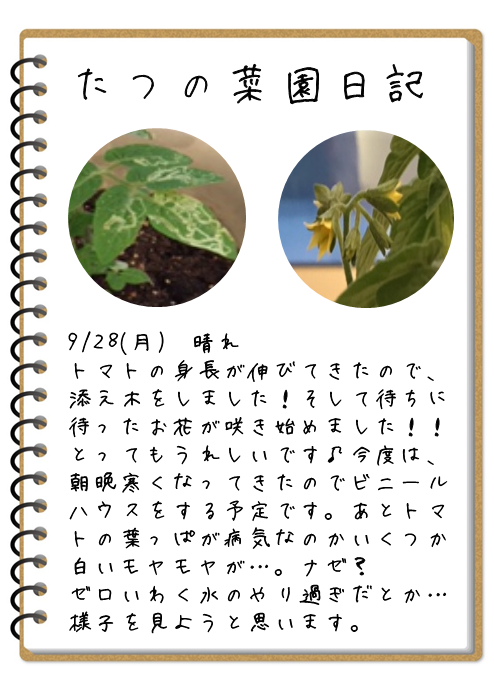 たつの菜園日記
9/28(月) 晴れ
トマトの身長が伸びてきたので、
添え木をしました！そして待ちに
待ったお花が咲き始めました！！
とってもうれしいです♪今度は、
朝晩寒くなってきたのでビニール
ハウスをする予定です。あとトマ
トの葉っぱが病気なのかいくつか
白いモヤモヤが…。ナゼ？
ゼロいわく水のやり過ぎだとか…
様子を見ようと思います。